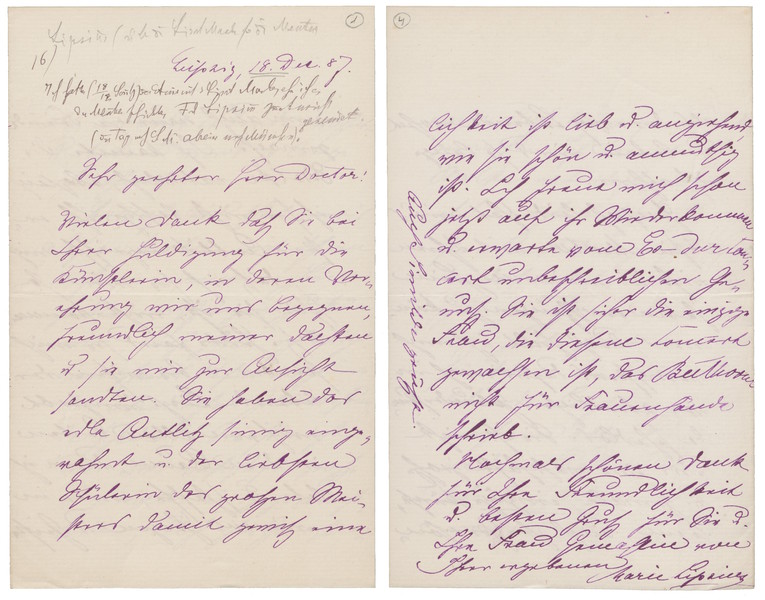 1
16)
Leipzig, 18. Dec. 87.
Sehr geehrter Herr Doctor!
Vielen Dank daß Sie bei
Ihrer Huldigung für die
Künstlerin, in deren Ver-
ehrung wir uns begegnen,
freundlich meiner dachten
u. sie mir zur Ansicht
sandten. Sie haben das
edle Antlitz sinnig einge-
rahmt u. der liebsten
Schülerin des großen Mei-
sters damit gewiß eine
4
lichkeit ist lieb u. anziehend
wie sie schön u. anmuthig
ist. Ich freue mich schon
jetzt auf ihr Wiederkommen
u. erwarte vom Es-dur Con-
cert unbeschreiblichen Ge-
nuß. Sie ist sicher die einzige
Frau, die diesem Concert
gewachsen ist, das Beethoven
nicht für Frauenhände
schrieb.
Nochmals schönen Dank
für Ihre Freundlichkeit
u. besten Gruß für Sie u.
Ihre Frau Gemahlin von
Ihrer ergebenen
Marie Lipsius